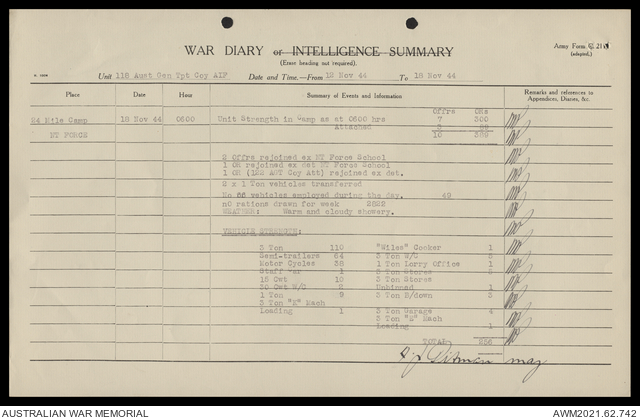 WAR DIARY or INTELLIGENCE SUMMARY
(Erase heading not required).
Army Form C. 2118
(adapted.)
Unit 118 Aust Gen Tpt Coy AIF Date and Time.—From 12 Nov 44 To 18 Nov 44
Place Date Hour Summary of Events and Information Remarks and references to
Appendices, Diaries, &c.
Offrs Ors
24 Mile Camp 18 Nov 44 0600 Unit Strength in Camp as at 0600 hrs 7 300
Attached
NT FORCE 10
2 Offrs rejoined ex NT Force School
1 OR rejoined ex det NT Force School
1 OR (122 AGT Coy Att) rejoined ex det.
2 x 1 Ton vehicles transferred
No of vehicles employed during the day. 49
no rations drawn for week 2822
WEATHER: Warm and cloudy showery.
VEHICLE STRENGTH:
3 Ton 110 "Wiles" Cooker 1
Semi-trailers 64 3 Ton W/C 5
Motor Cycles 38 1 Ton Lorry Office 1
Staff Car 1 3 Ton Stores 3
15 Cwt 10 3 Ton Stores
30 Cwt W/C 2 Unbinned 1
1 Ton 9 3 Ton B/down 3
3 Ton "Z" Mach 3 Ton Garage 4
Loading 1 3 Ton "Z" Mach
Loading 1
TOTAL 256
Pitman Maj
AUSTRALIAN WAR MEMORIAL AWM2021.62.742